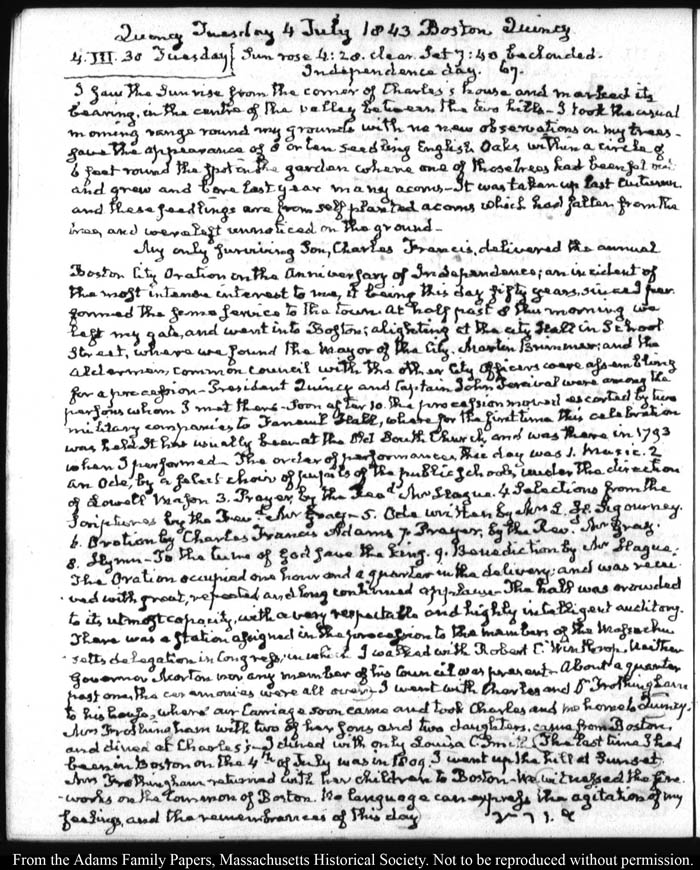 Quincy Tuesday 4 July 1843 Boston Quincy
4. III. 30 Tuesday { Sun rose 4:28. clear. Set 7:40. beclouded.
Independence day. 67.
I saw the Sunrise from the corner of Charles's house and marked its
bearing, in the centre of the valley between the two hills – I took the usual
morning range round my grounds with no new observations on my trees –
save the appearance of 8 or ten seedling English Oaks within a circle of
6 feet round the spot in the garden where one of those trees had been
and grew and bore last year many acorns – It was taken up last Autumn
and these seedlings are from self planted acorns which had fallen from the
tree, and were left unnoticed on the ground –
My only surviving Son, Charles Francis, delivered the annual
Boston City Oration on the Anniversary of Independence; an incident of
the most intense interest to me, it being this day fifty years, since I per
formed the same service to the town. At half past 8 this morning we
left my gate, and went into Boston; alighting at the City Hall in School
Street, where we found the Mayor of the City, Martin Brimmer; and the
Aldermen, common council with the other City Officers were assembling
for a procession – President Quincy and Captain John Percival were among the
persons whom I met there – Soon after 10. the procession moved escorted by two
military companies to Faneuil Hall, where for the first time this celebration
was held. It has usually been at the Old South Church, and was there in 1793
when I performed – The order of performances this day was 1. Music. 2
an Ode, by a select choir of pupils of the public schools, under the direction
of Lowell Mason 3. Prayer, by the Revd. Mr Hague. 4 Selections from the
Scriptures by the Revd. Mr Gray – 5. Ode written by Mrs L. H. Sigourney.
6. Oration by Charles Francis Adams 7. Prayer, by the Revd. Mr Gray.
8. Hymn – To the tune of God save the King. 9. Benediction by Mr Hague.
The Oration occupied one hour and a quarter in the delivery; and was recei
ved with great, repeated and long continued applause – The hall was crowded
to its utmost capacity, with a very respectable and highly intelligent auditory.
There was a station assigned in the procession to the members of the Massachu
setts delegation in Congress, in which I walked with Robert C. Winthrop. Neither
Governor Morton nor any member of his Council was present – About a quarter
past one, the ceremonies were all over; I went with Charles and Dr Frothingham
to his house, where our Carriage soon came and took Charles and me home to Quincy.
Mrs Frothingham with two of her sons and two daughters, came from Boston,
and dined at Charles's; I dined with only Louisa C. Smith. The last time I had
been in Boston on the 4th of July was in 1809. I went up the hill at Sunset.
Mrs Frothingham returned with her children to Boston – We witnessed the fire
works on the common of Boston. No language can express the agitation of my
feelings, and the remembrances of this day
From the Adams Family Papers, Massachusetts Historical Society. Not to be reproduced without permission.